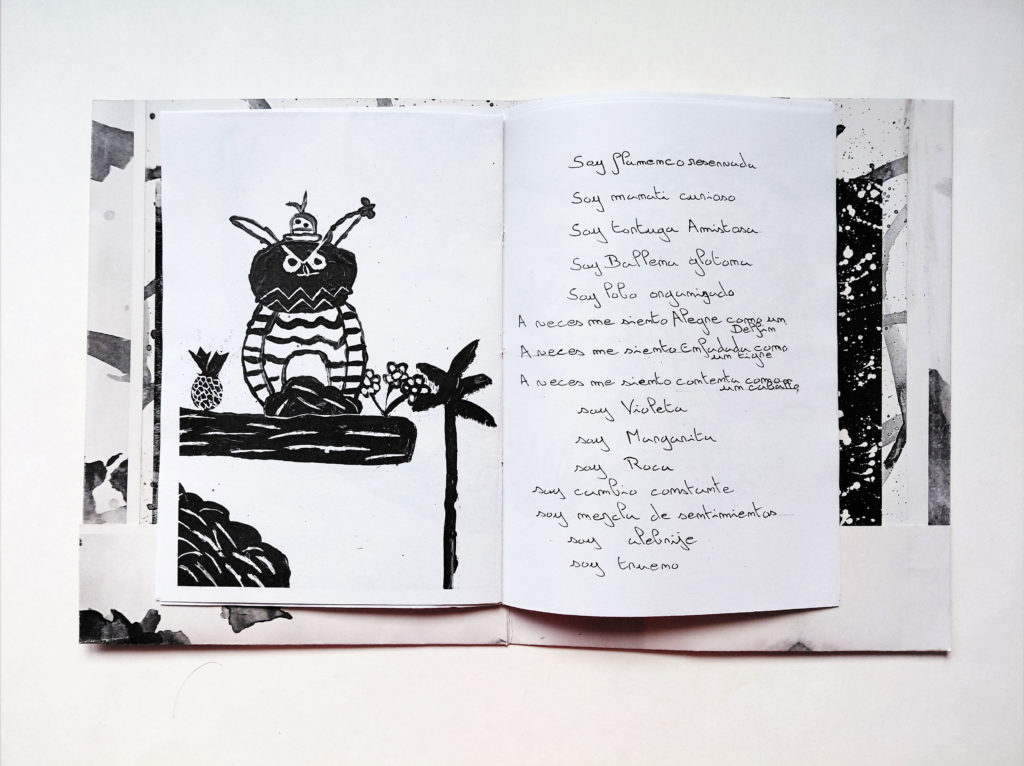 Soy flamenco reservada
Soy manati curioso
Soy tortuga Amistosa
Soy Ballena glotona
Soy lobo organizado
A veces me siento Alegre como un
Delfin
A veces me siento Enfadada como
un tigre
A veces me siento contenta como
un caballo
soy Violeta
soy Margarita
soy Roca
soy cambio constante
soy mezcla de sentimientos
soy alebrije
soy trueno